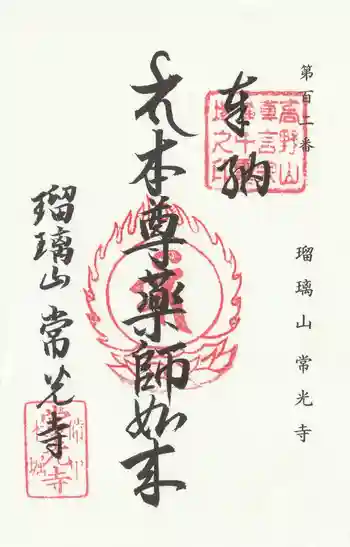 第百二番　瑠璃山常光寺
奉納
本尊薬師如来
瑠璃山常光寺
高野山
真言宗
常光寺